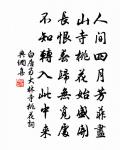 人間四月芳菲盡
山寺桃花始盛開
長恨春歸無覓處
不知轉入此中來
白居易大林寺桃花詞